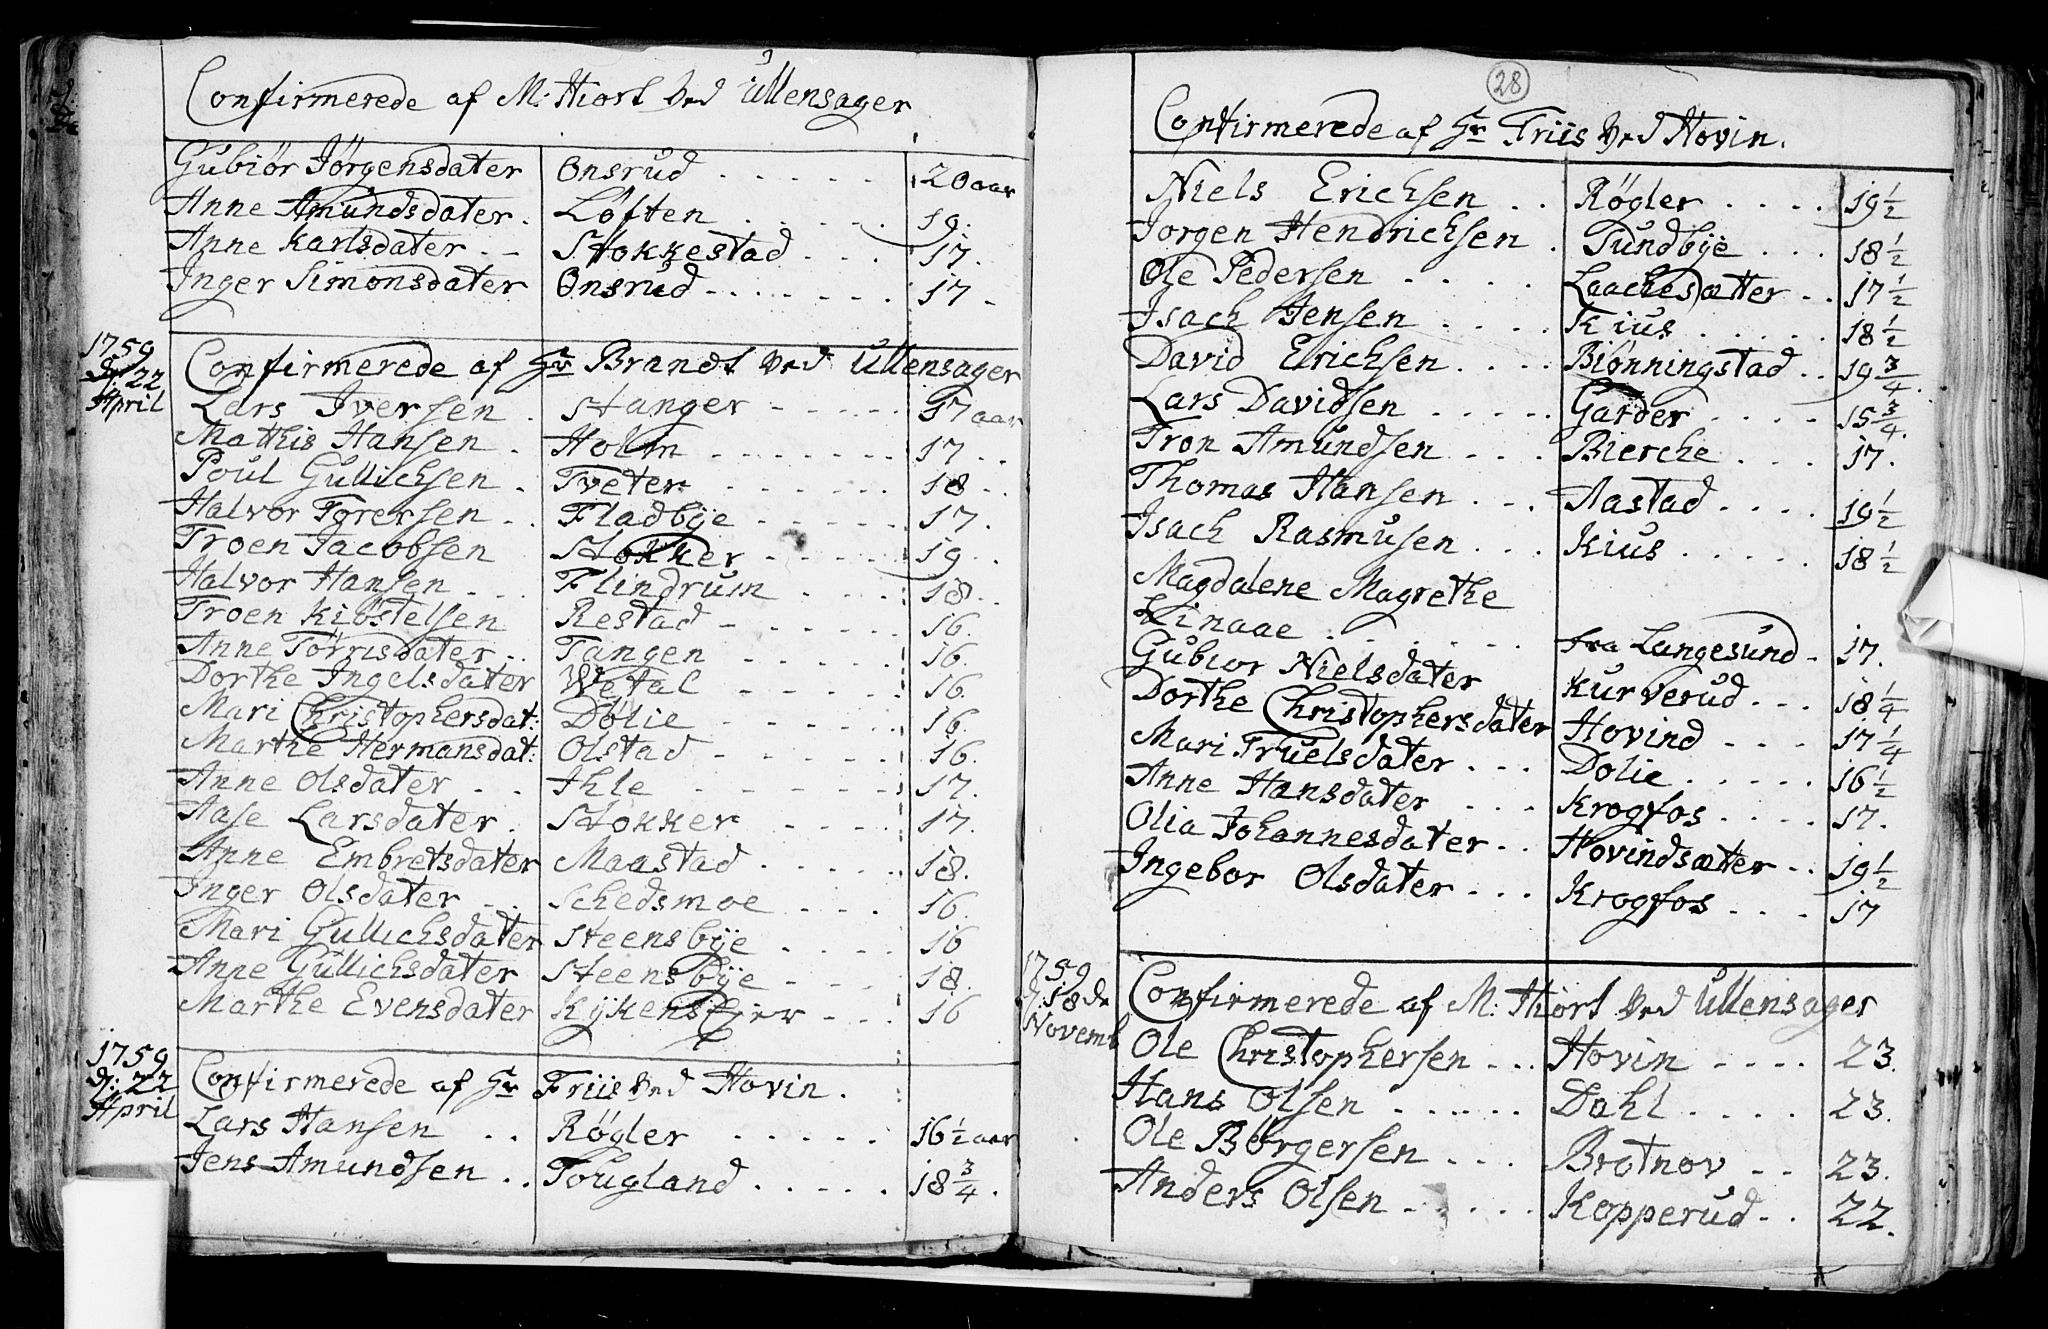 Confirmerede af M: Hiort ved Ullensager
Gubiör Jörgensdater Onsrud . . . . . 20 aar
Anne Amundsdater . Löften . . . . . 19.
Anne Karlsdater . . Stokkestad . . . 17.
Inger Simonsdater Onsrud . . . . . . . 17 .
1759
d: 22
April
Confirmerede af Hr Brandt ved Ullensager
Lars Iversen . Stanger . . . . . 17 aar
Mathis Hansen . Holm . . . . . . . 17 . .
Poul Gullichsen . Tveter . . . . . . . 18 . .
Halvor Torersen . . Fladbÿe . . . . . 17 .
Troen Jacobsen Stokker . . . . . 19 . .
Halvor Hansen . . . Flindrum . . . . 18 . .
Troen Kiöstelsen Restad . . . . . . 16.
Anne Törrisdater . . Tangen . . . . . . 16.
Dorthe Ingelsdater Wetal . . . . . . 16.
Mari Christophersdat: Dölie . . . . . . 16.
Marthe Hermansdat: Olstad . . . . . . 16.
Anne Olsdater . . Ihle . . . . . . . 17.
Aase Larsdater . Stokker . . . . 17.
Anne Embretsdater Maastad . . . . . 18.
Inger Olsdater . . Schedsmoe . . . 16.
Mari Gullichsdater Steensbÿe . . . . 16
Anne Gullichsdater Steensbÿe . . . . 18.
Marthe Evensdater . . . 16
1759
d: 22
April
Confirmerede af Hr Friis ved Hovin .
Lars Hansen . . Rögler . . . . . 16 1/2 aar
Jens Amundsen . . Tougland . . . . . 18 3/4 .
28
Confirmerede af Hr Friis ved Hovin.
Niels Erichsen . . Rögler . . . . 19 1/2
Jorgen Hendrichsen . Sundbÿe . . . 18 1/2
Ole Pedersen . . . . Laachesætter . . 17 1/2
Isach Jensen . . . . Kius . . . . . 18 1/2
David Erichsen . . . . Biönningstad . . 19 3/4 .
Lars Davidsen . . . . . Garder . . . . 15 3/4 .
Tron Amundsen . . . Bierche . . . 17 .
Thomas Hansen . . . Aastad . . . . 19 1/2
Isach Rasmusen . . . Kius . . . . . 18 1/2
Magdalene Magrethe
Linaae . . . . . . fra Langesund . 17.
Gubior Nielsdater Kurverud . . . 18 1/4
Dorthe Christophersdater Hovind . . . . 17 1/4
Mari Truelsdater . . . Dolie . . . . . 16 1/2
Anne Hansdater . . . Krogfos . . . . 17.
Olia Johannesdater . . Hovindsæter . . 19 1/2
Ingebor Olsdater . . . Krogfos . . . 17
1759
d: 18 de
Novemb
Confirmerede af M: Hiort ved Ullensager
Ole Christophersen . . . Hovin . . . . 23.
Hans Olsen . . . . . . Dahl . . . . 23.
Ole Börgersen . . . Brotnov . . 23.
Anders Olsen . . . . . Kopperud . . 22.